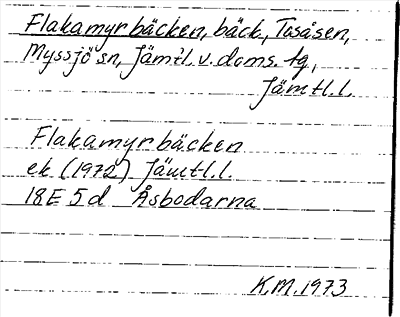 Flakamyrbäcken, bäck, Tåsåsen,
Myssjö sn, Jämtl. v. doms. tg,
Jämtl.l.
Flakamyrbäcken
ek (1972) Jämtl.l.
18E 5d Åsbodarna
K.M. 1973